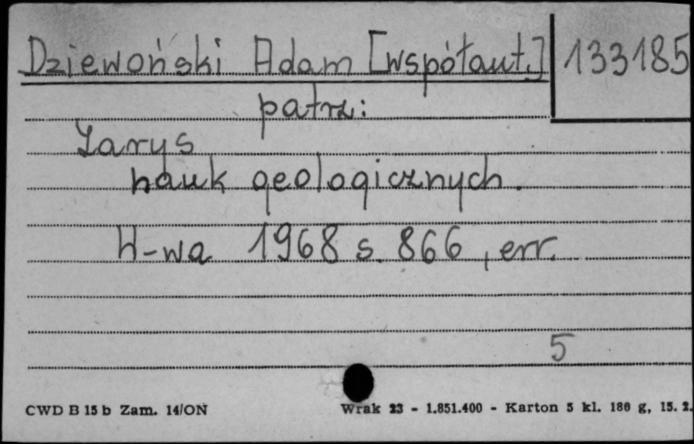 Dziewoński Adam [współaut.] 133185
patrz:
Zarys
nauk geologicznych.
W-wa 1968 s. 866, err.
5
CWD B 15 b Zam. 14/ON Wrak 23 - 1.851.400 - Karton 5 kl. 180 g, 15. 2.